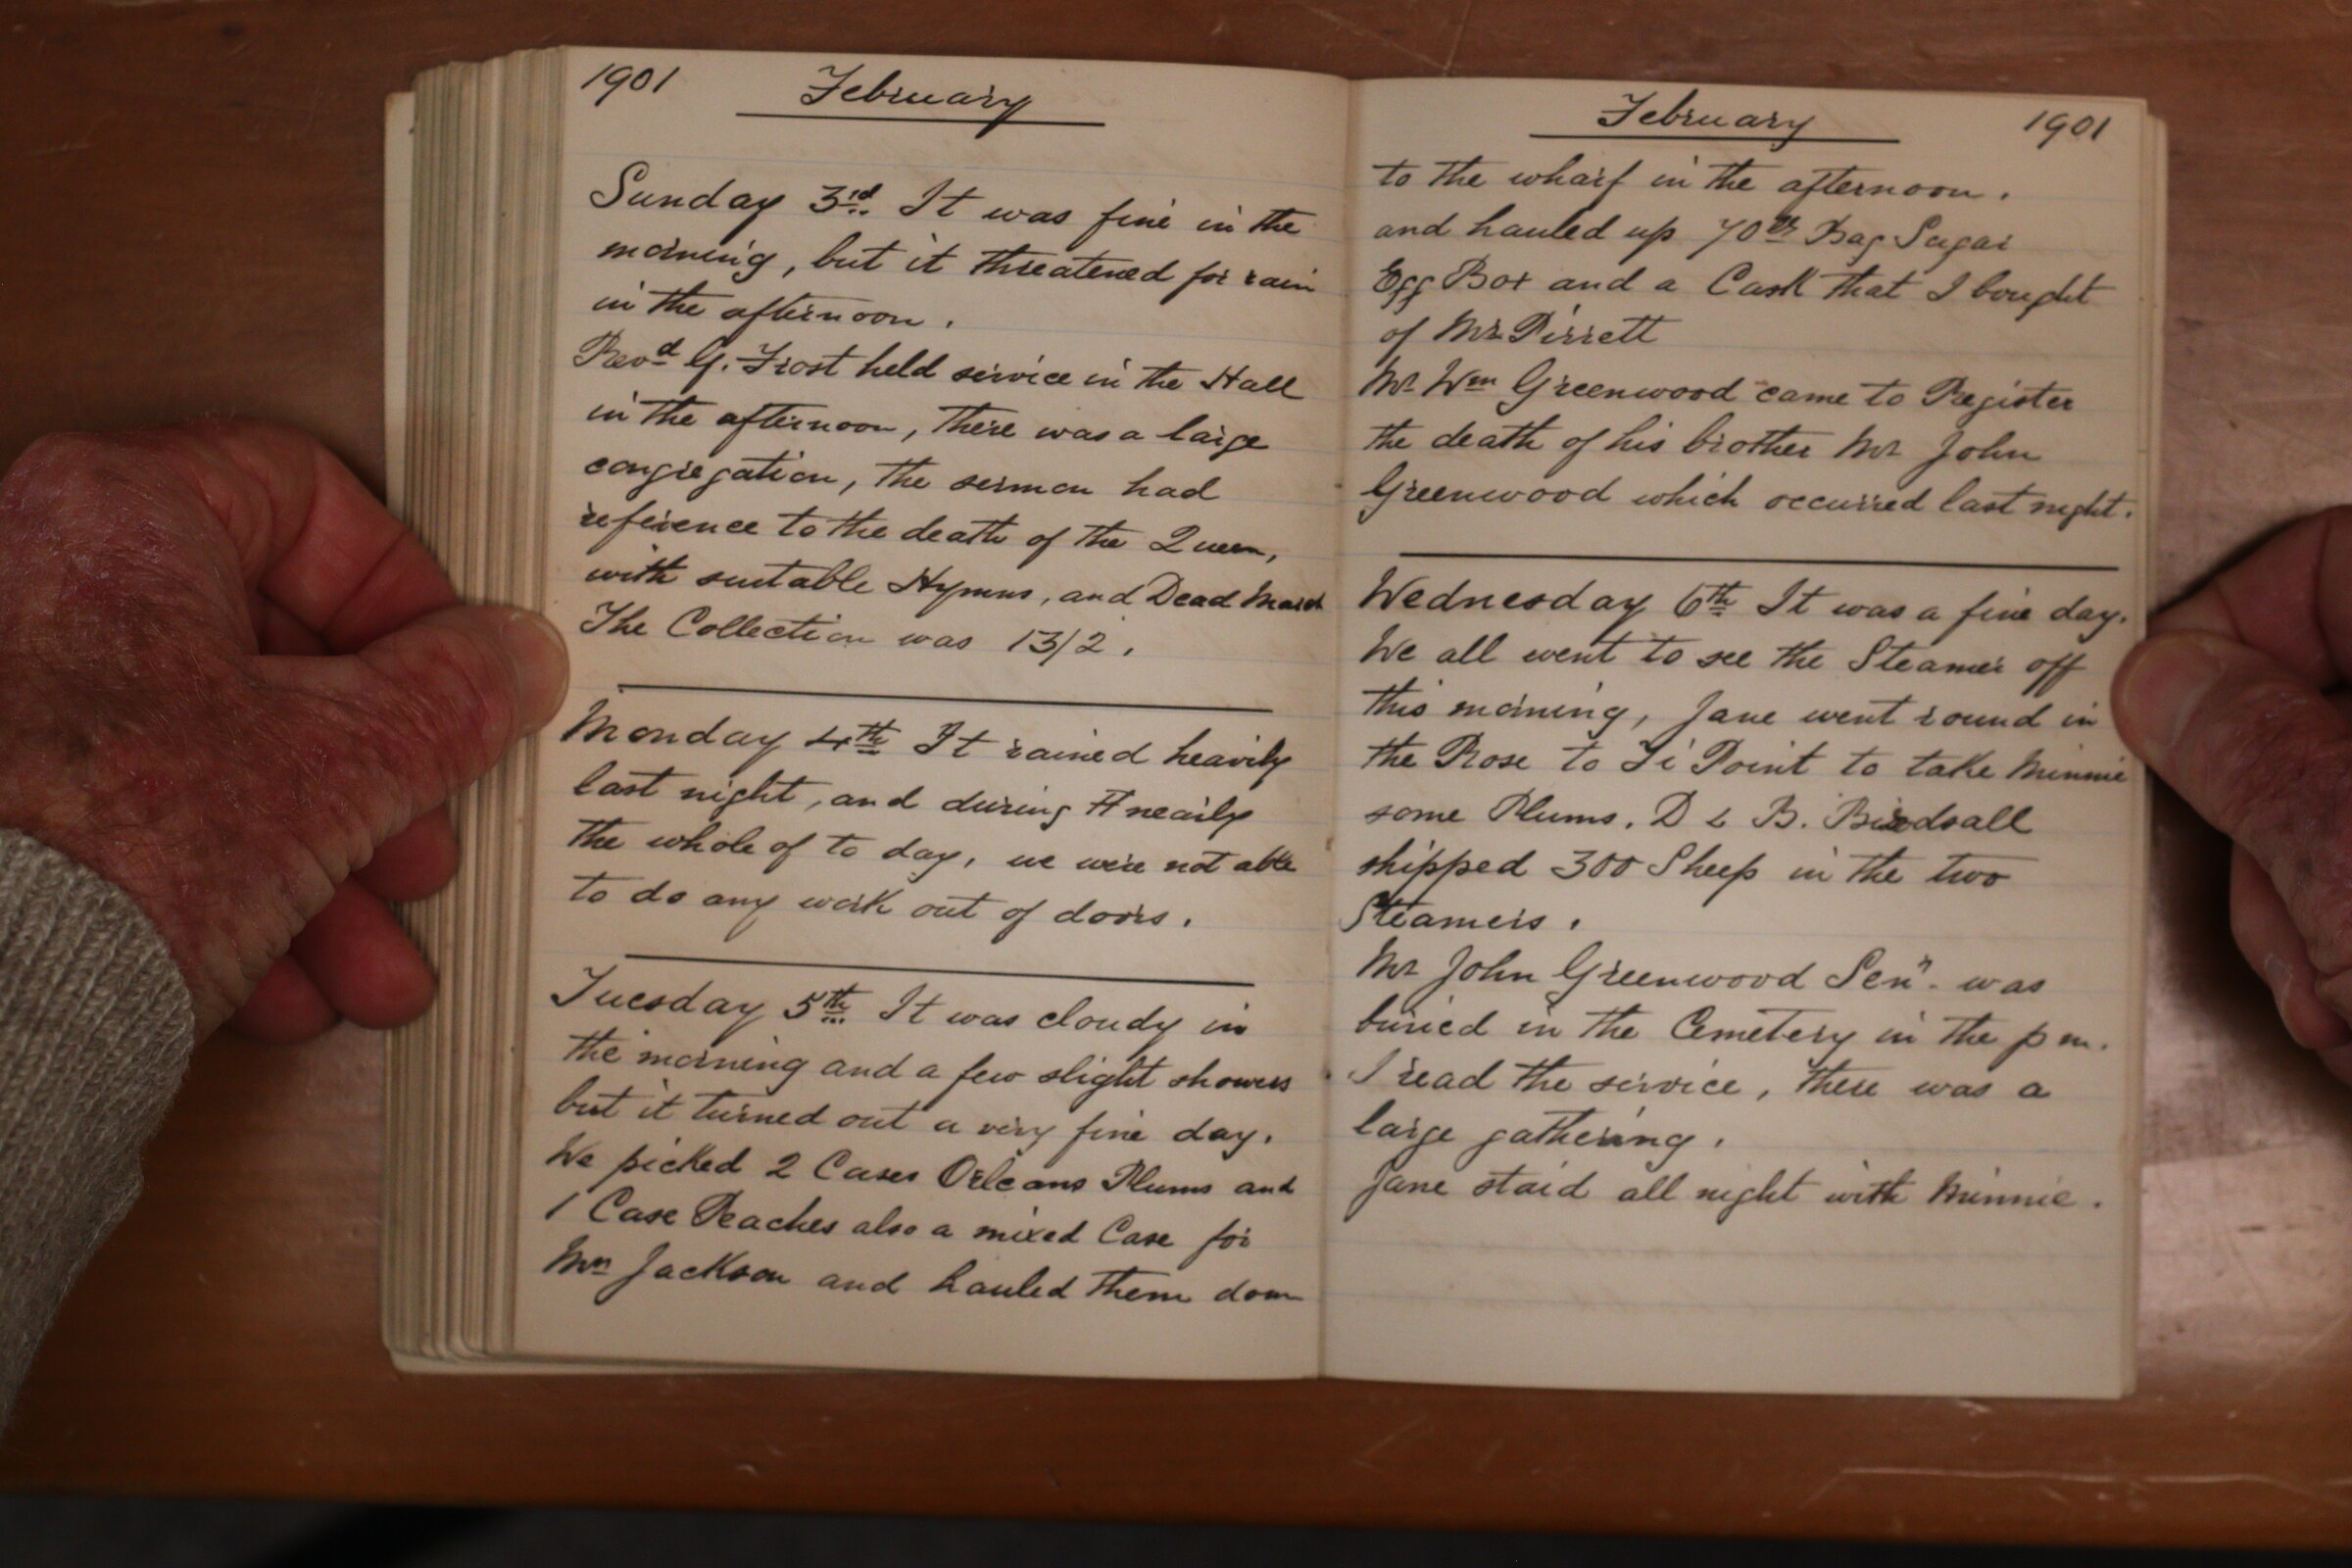 1901 February
Sunday 3rd. It was fine in the
morning, but it threatened for rain
in the afternoon.
Revd G. Frost held service in the Hall
in the afternoon, there was a large
congregation, the sermon had
reference to the death of the Queen,
with suitable Hymns, and Dead March
The Collection was 13/2.
Monday 4th It rained heavily
last night, and during nearly
the whole of to day, we were not able
to do any work out of doors.
Tuesday 5th. It was cloudy in
the morning and a few slight showers
but it turned out a very fine day.
We picked 2 Cases Orleans Plums and
1 Case Peaches also a mixed Case for
Mrs Jackson and hauled them down
February 1901
to the wharf in the afternoon.
and hauled up 70 lbs Bag Sugar
Egg Box and a Cask that I bought
of Mr Pirrett
Mr Wm Greenwood came to Register
the death of his brother Mr John
Greenwood which occurred last night.
Wednesday 6th It was a fine day.
We all went to see the Steamer off
this morning, Jane went round in
the Rose to Ti Point to take Minnie
some Plums. D & B. Birdsall
shipped 300 Sheep in the two
Steamers.
Mr John Greenwood Senr. was
buried in the Cemetery in the p m.
I read the service, there was a
large gathering.
Jane staid all night with Minnie.